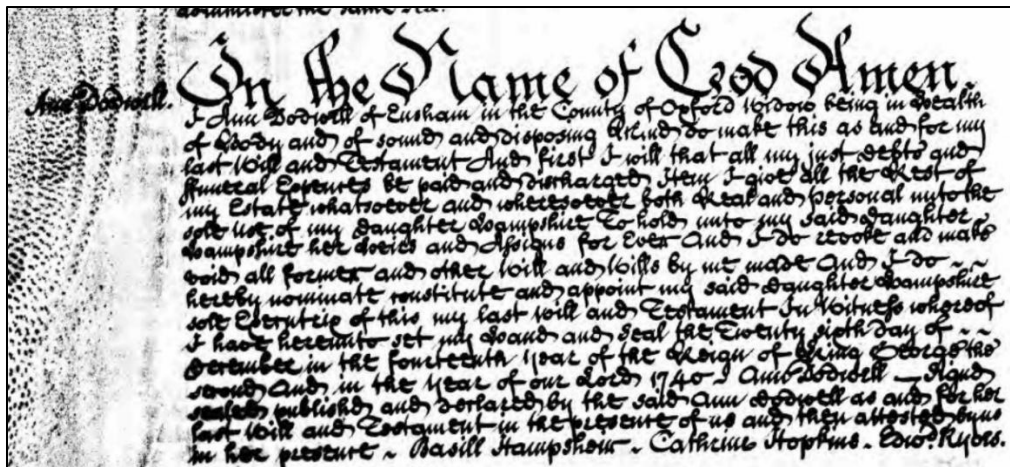 administer the same &c.
In the Name of God Amen.
Ann Dodwell.
I Ann Dodwell of Ensham in the County of Oxford Widow being in Health
of Body and of sound and disposing Mind do make this as and for my
last Will and Testament And first I will that all my just Debts and
ffuneral Expences be paid and discharged Item I give all the Rest of
my Estate whatsoever and wheresoever both Real and Personal unto the
sole use of my Daughter Hampshire To hold unto my said Daughter
Hampshire her Heires and Assigns for Ever And I do revoke and make
void all former and other Will and Wills by me made And I do ~ ~
hereby nominate constitute and appoint my said Daughter Hampshire
sole Executrix of this my last Will and Testament In Witness whereof
I have hereunto set my Hand and Seal the Twenty sixth Day of ~ ~
December in the fourteenth Year of the Reign of King George the
second And in the Year of our Lord 1740 Ann Dodwell — Signed
sealed published and declared by the said Ann Dodwell as and for her
last Will and Testament in the presence of us and then attested by us
in her presence ~ Basill Hampshew ~ Cathrine Hopkins ~ Edwd.